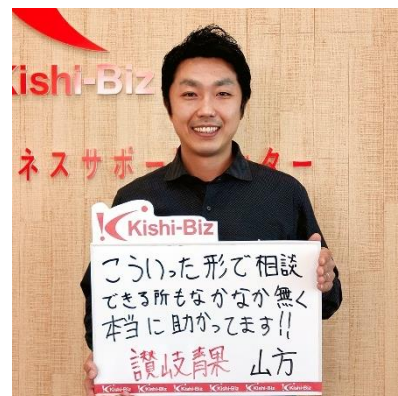 Kishi-Biz
ネスサポー ター
Kishi-Biz
こういった形で相談
できる所もなかなか無く
本当に助かってます!!
讃岐青果 山方
Kishi-Biz Kishi-Biz Kishi-Biz Kishi-Biz Kishi-Biz